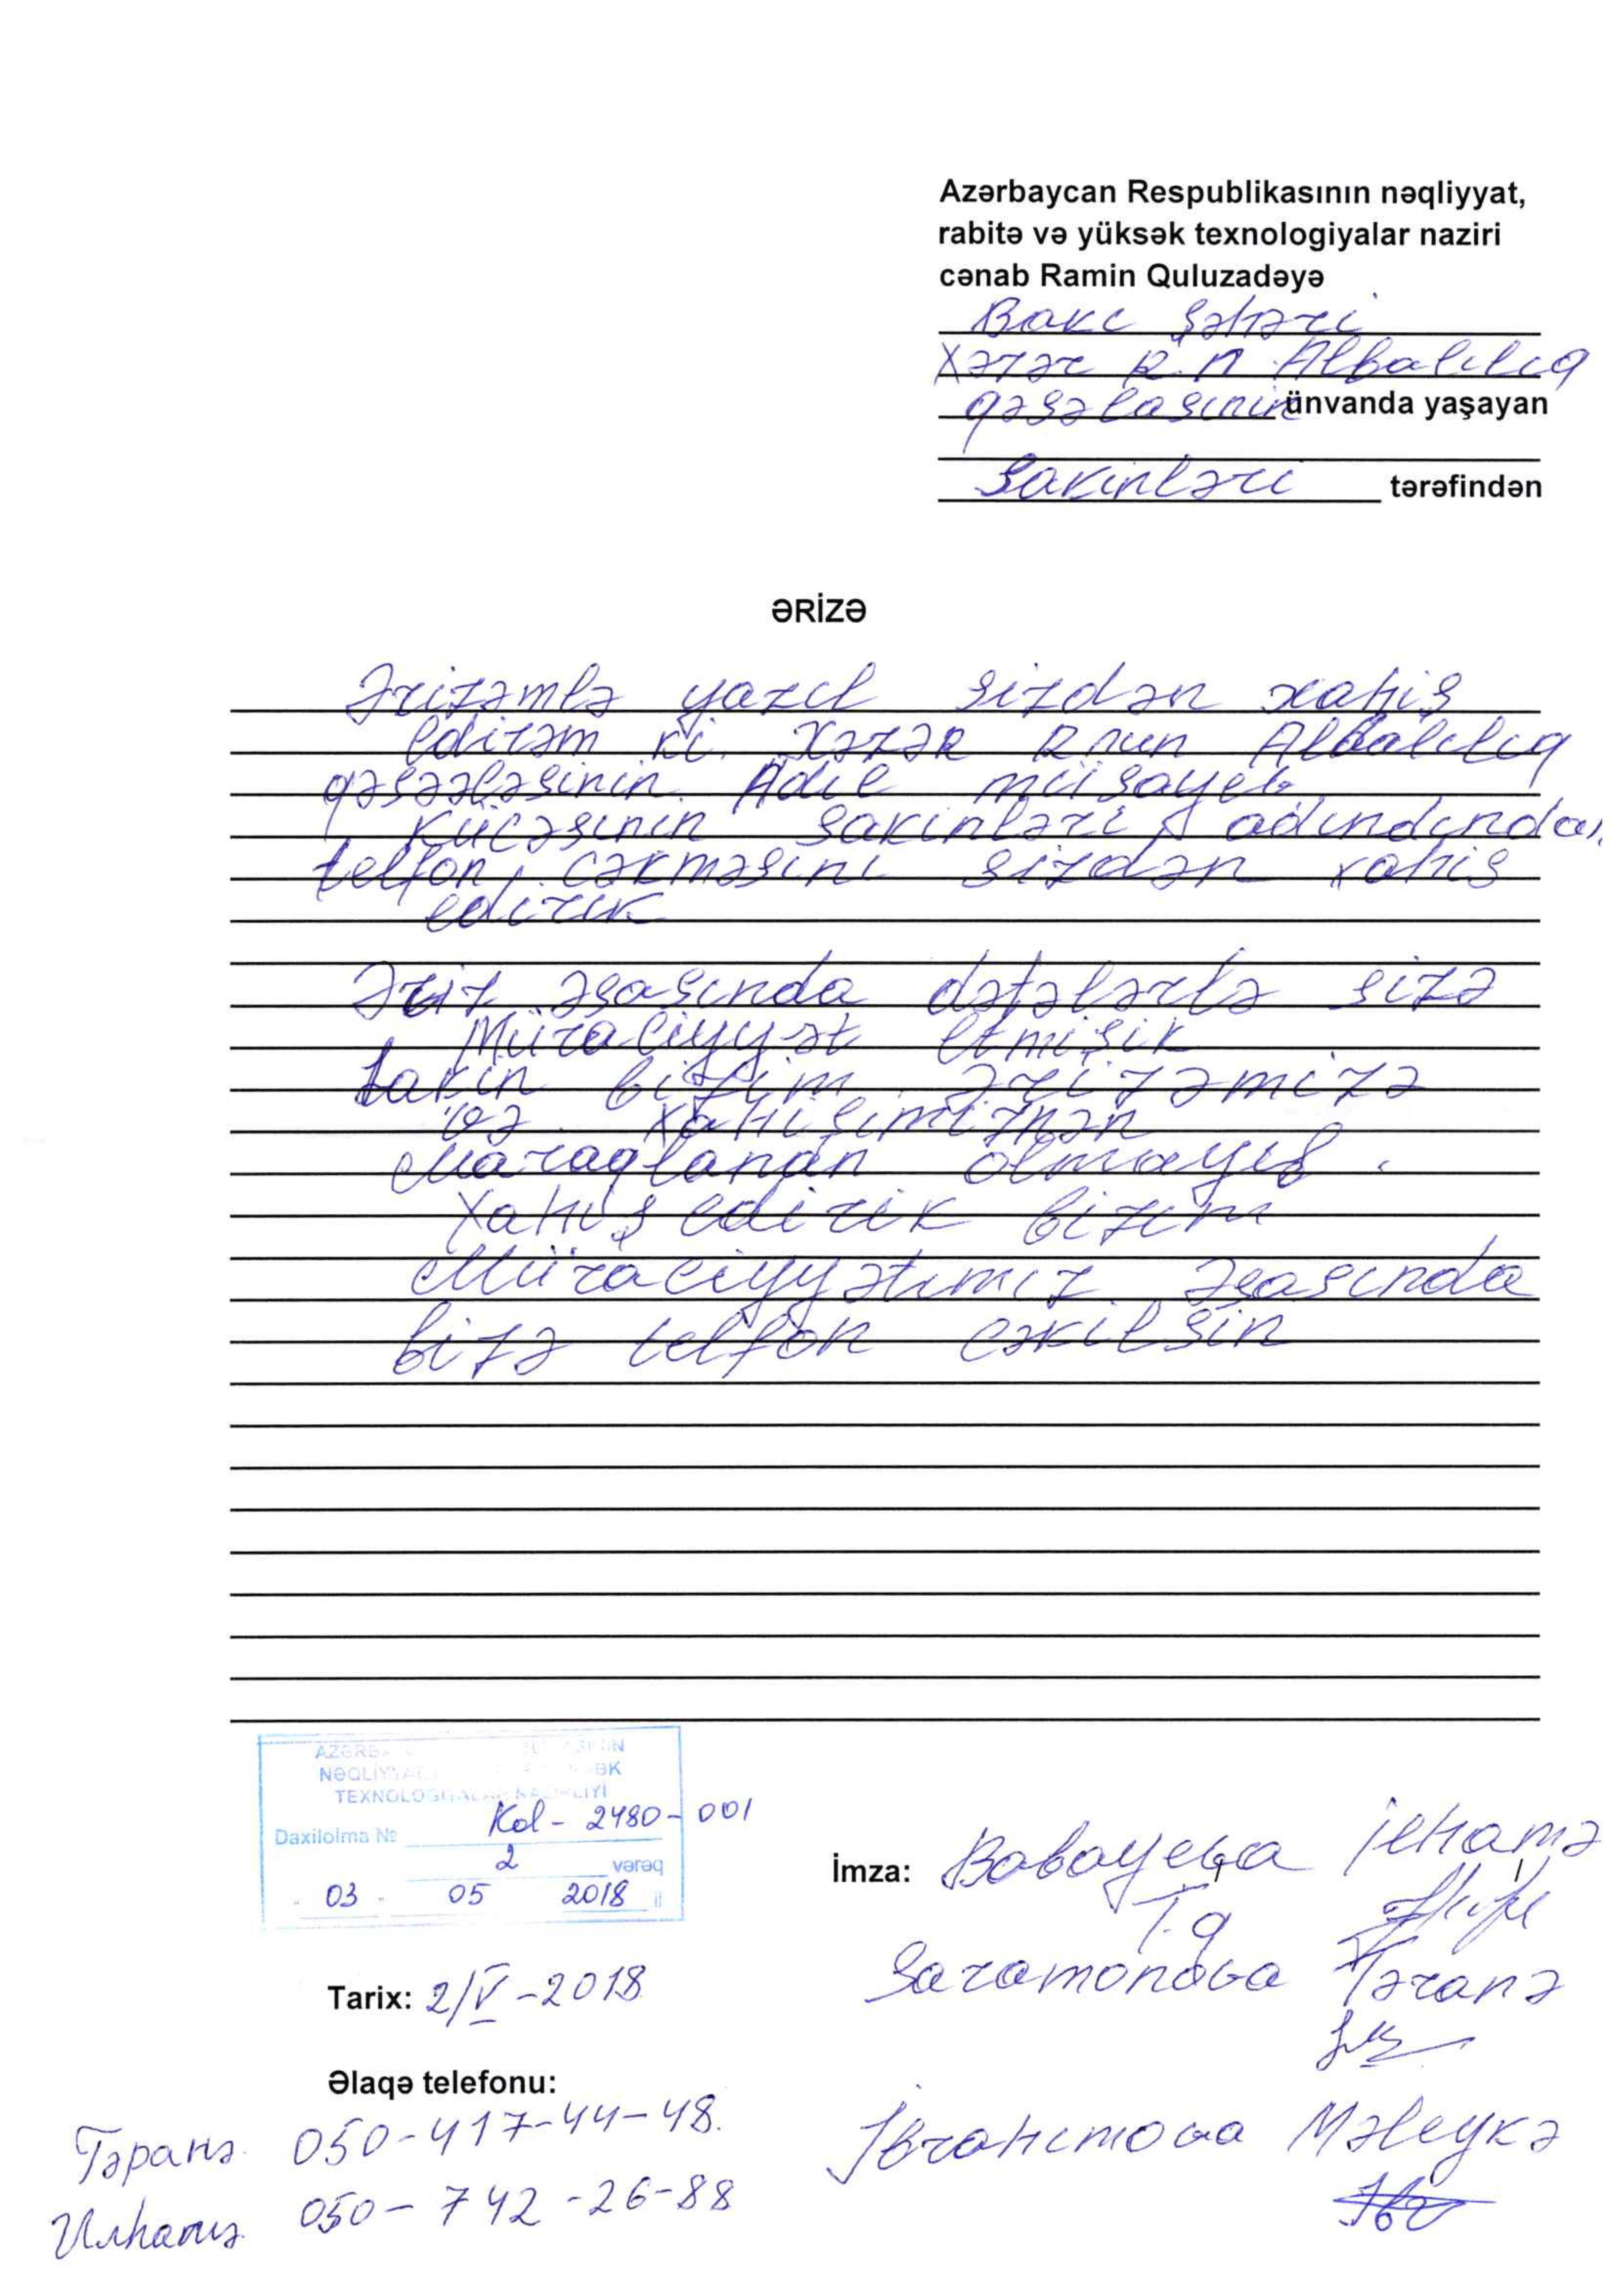 Azərbaycan Respublikasının nəqliyyat,
rabitə və yüksək texnologiyalar naziri
cənab Ramin Quluzadəyə
Bakı şəhəri
Xəzər R.n Albalılıq
qəsəbəsinin ünvanda yaşayan
sakinləri tərəfindən
ƏRİZƏ
Ərizəmlə yazıb sizdən xahiş
edirəm ki. Xəzər R nun Albalılıq
qəsəbəsinin. Adil müsayeb
küçəsinin sakinləri adındından
telfon, cəkməsini sizdən xahiş
edirik
Əriz əsasında dəfələrlə sizə
Müraciyyət etmişik
Lakin bizim ərizəmizə
və xahişimiznən
Maraqlanan olmayıb.
Xahiş edirik bizim
Müraciyyətimiz əsasında
bizə telfon cəkilsin
NƏQLİYYAT
TEXNOLOGİYALAR NAZİRLİYİ
Daxilolma № Kol - 2480-001
2 vərəq
03 05 2018 il
İmza: Babayeva İlhamə
T.q
Saramonova Təranə
Tarix: 2/V-2018
Əlaqə telefonu:
Тəранə. 050-417-44-48.
Илhамə. 050-742-26-88
İbrahimova Məleykə